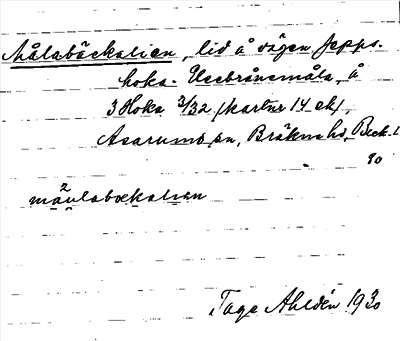 Målabäckalien, lid å vägen Jepps-
hoka - Ussbrånemåla, å
3 Hoka 3/32 (kartnr 14 ek),
Asarums sn, Bräkne hd, Blek. l.
90
må²ulabækalian
Tage Ahldén 1930